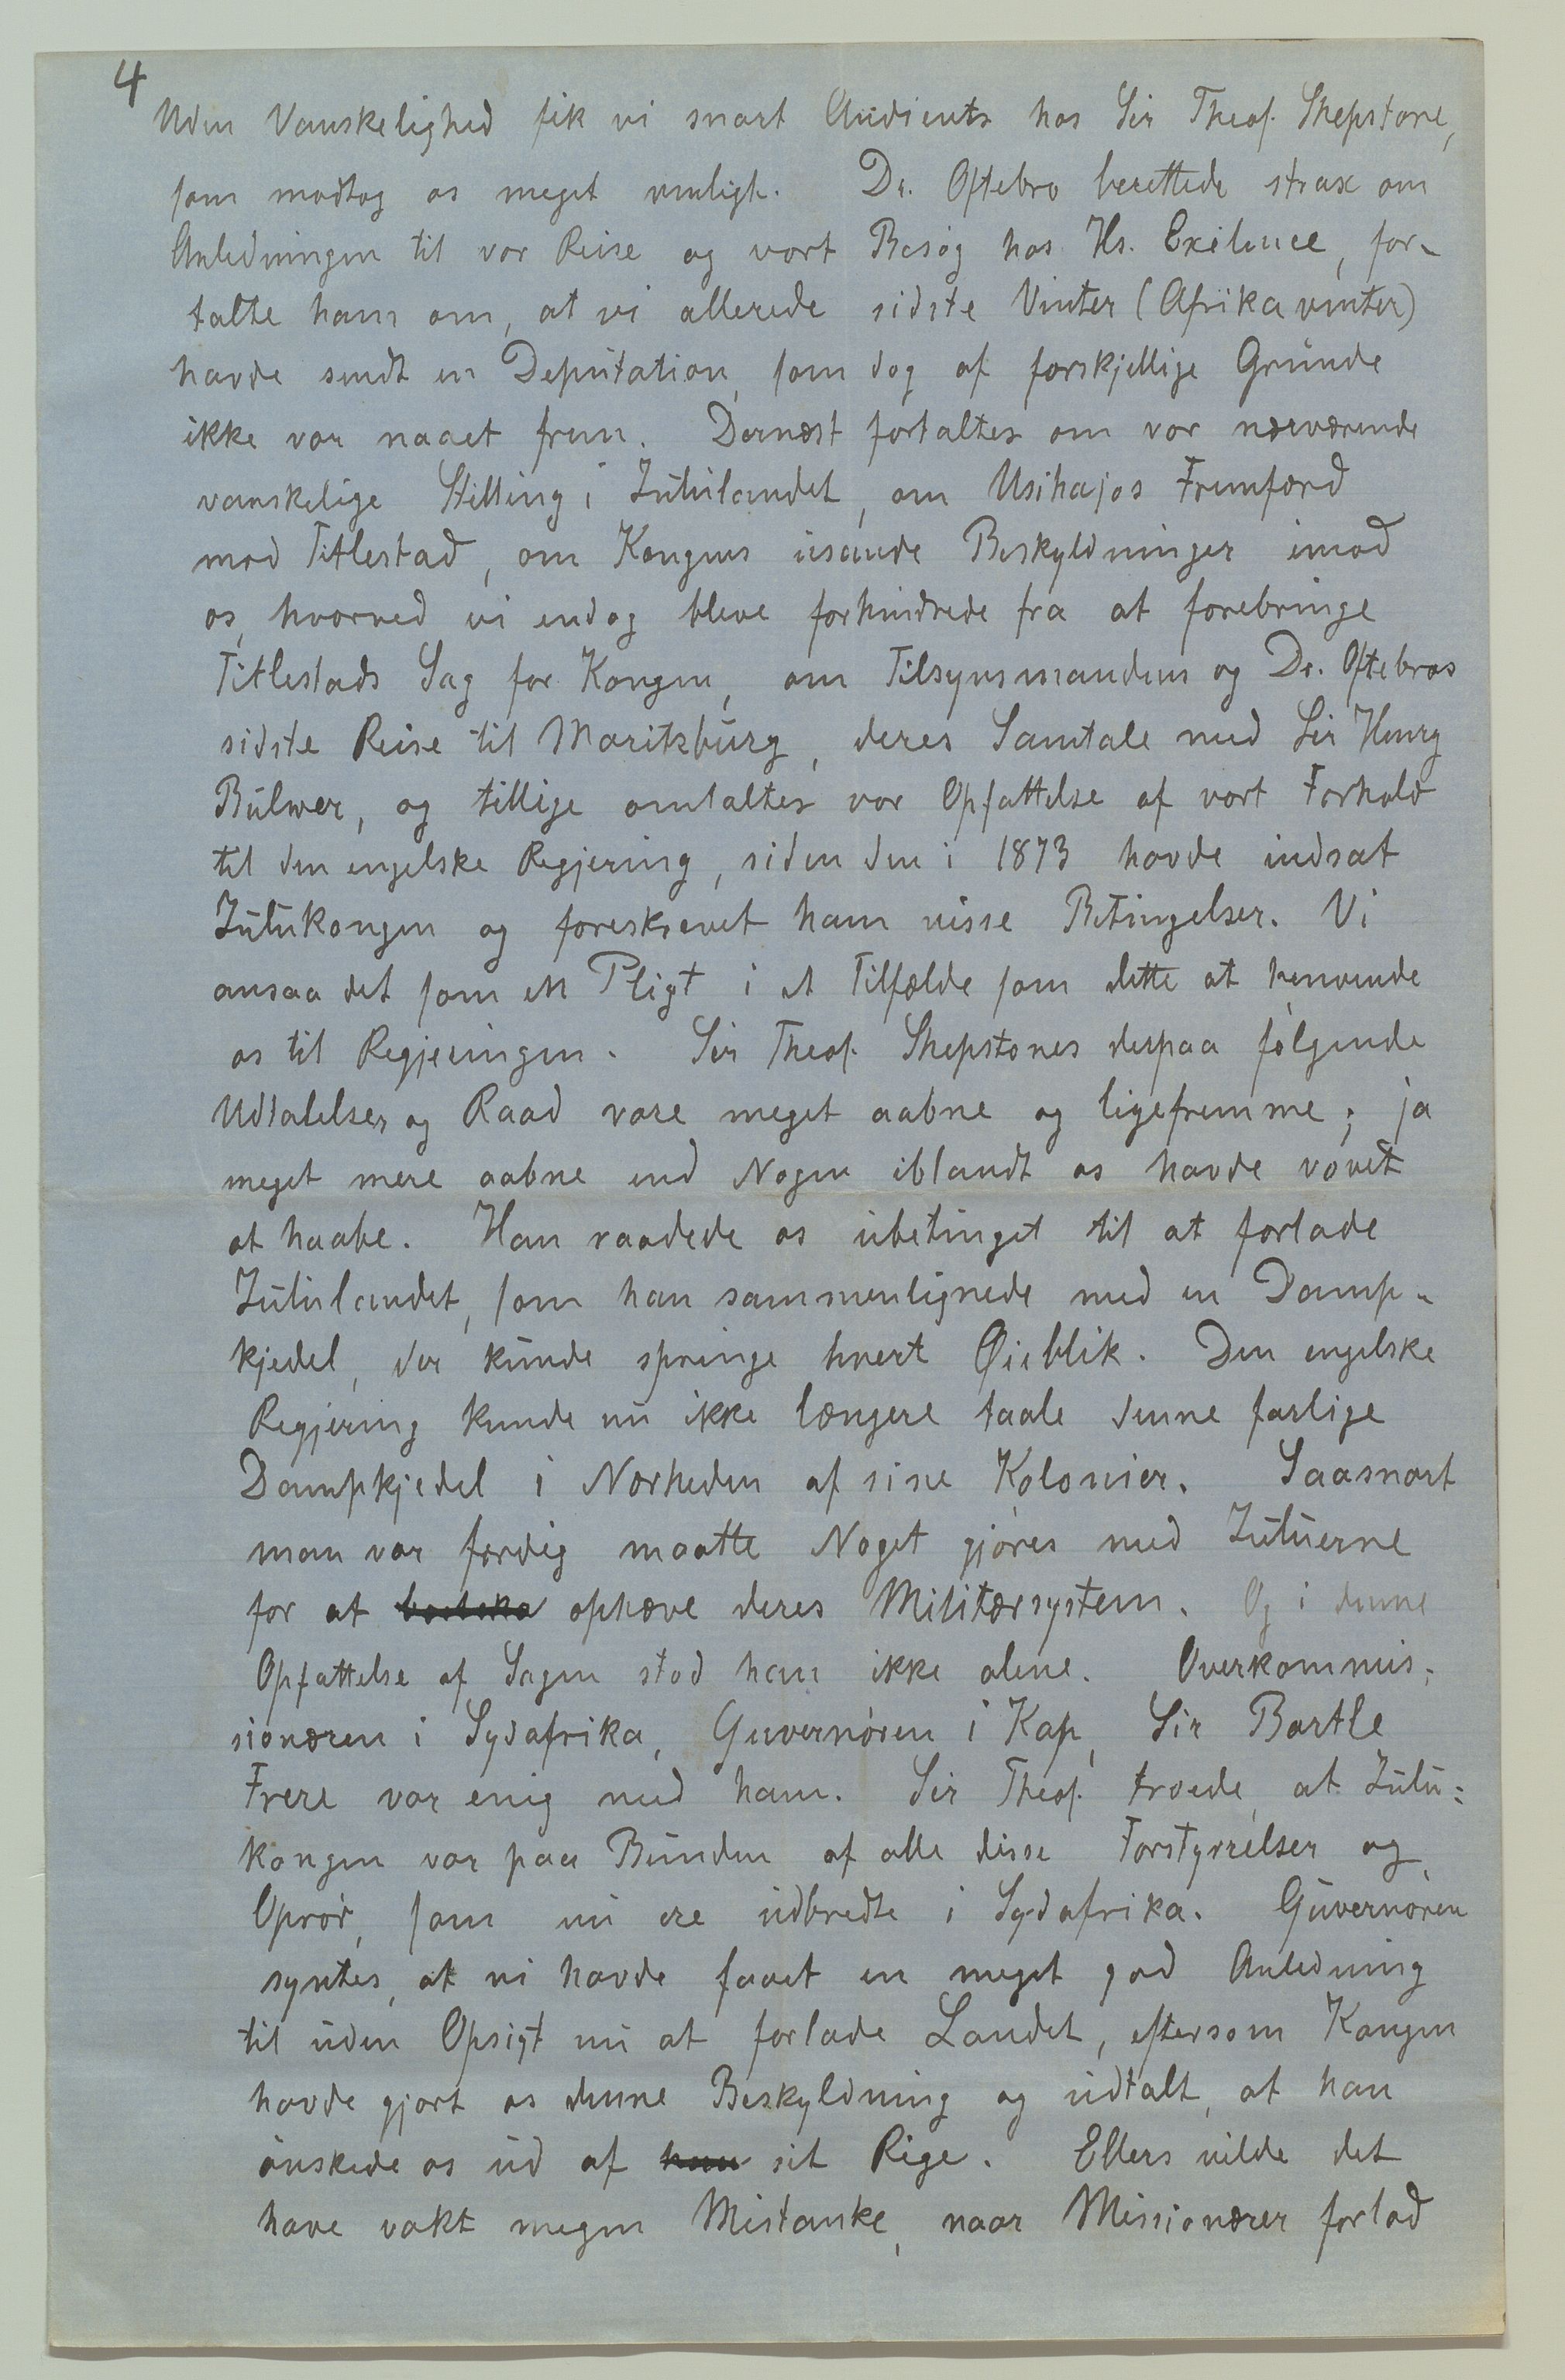 4
Uden Vanskelighed fik vi snart Audients hos Sir Theof. Shepstone,
som modtog os meget venligt. Dr. Oftebro berettede strax om
Anledningen til vor Reise og vort Besøg hos Hs. Exilence, for-
talte ham om, at vi allerede sidste Vinter (Afrika vinter)
havde sendt en Deputation, som dog af forskjellige Grunde
ikke var naaet frem. Dernæst fortaltes om vor nærværende
vanskelige Stilling i Zululandet, om Usihajos Fremfærd
mod Titlestad, om Kongens usande Beskyldninger imod
os, hvorved vi endog bleve forhindrede fra at forebringe
Titlestads Sag for Kongen, om Tilsynsmandens og Dr. Oftebros
sidste Reise til Maritzburg, deres Samtale med Sir Henry
Bulwer, og tillige omtaltes vor Opfattelse af vort Forhold
til den engelske Regjering, siden den i 1873 havde indsat
Zulukongen og foreskrevet ham visse Betingelser. Vi
ansaa det som en Pligt i et Tilfælde som dette at henvende
os til Regjeringen. Sir Theof. Shepstones derpaa følgende
Udtalelser og Raad vare meget aabne og ligefremme; ja
meget mere aabne end Nogen iblandt os havde vovet
at haabe. Han raadede os ubetinget til at forlade
Zululandet, som han sammenlignede med en Damp-
kjedel, der kunde springe hvert Øieblik. Den engelske
Regjering kunde nu ikke længere taale denne farlige
Dampkjedel i Nærheden af sine Kolonier. Saasnart
man var færdig maatte Noget gjøres med Zuluerne
for at ophæve deres Militærsystem. Og i denne
Opfattelse af Sagen stod han ikke alene. Overkommis-
sionæren i Sydafrika, Guvernøren i Kap, Sir Bartle
Frere var enig med ham. Sir Theof. troede, at Zulu-
kongen var paa Bunden af alle disse Forstyrrelser og
Oprør, som nu ere udbredte i Sydafrika. Guvernøren
syntes, at vi havde faaet en meget god Anledning
til uden Opsigt nu at forlade Landet, eftersom Kongen
havde gjort os denne Beskyldning og udtalt, at han
ønskede os ud af han sit Rige. Ellers vilde det
have vakt megen Mistanke, naar Missionærer forlod